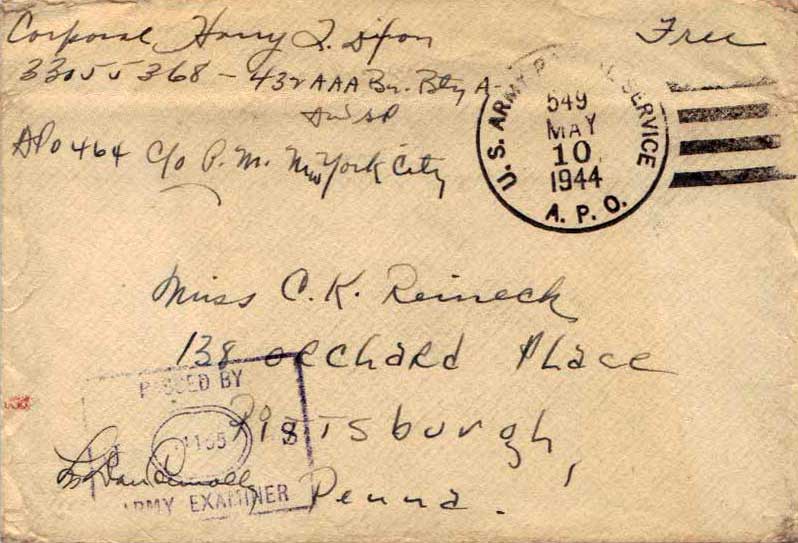 Corporal Harry L. Dixon
Free
33055368 - 432 AAA Bn. Bty A-
APO 464 C/o P.M. New York City
U.S. ARMY POSTAL SERVICE
549
MAY
10
1944
A.P.O.
Miss C. K. Reineck
138 Orchard Place
Pittsburgh,
Penna.
PASSED BY
ARMY EXAMINER